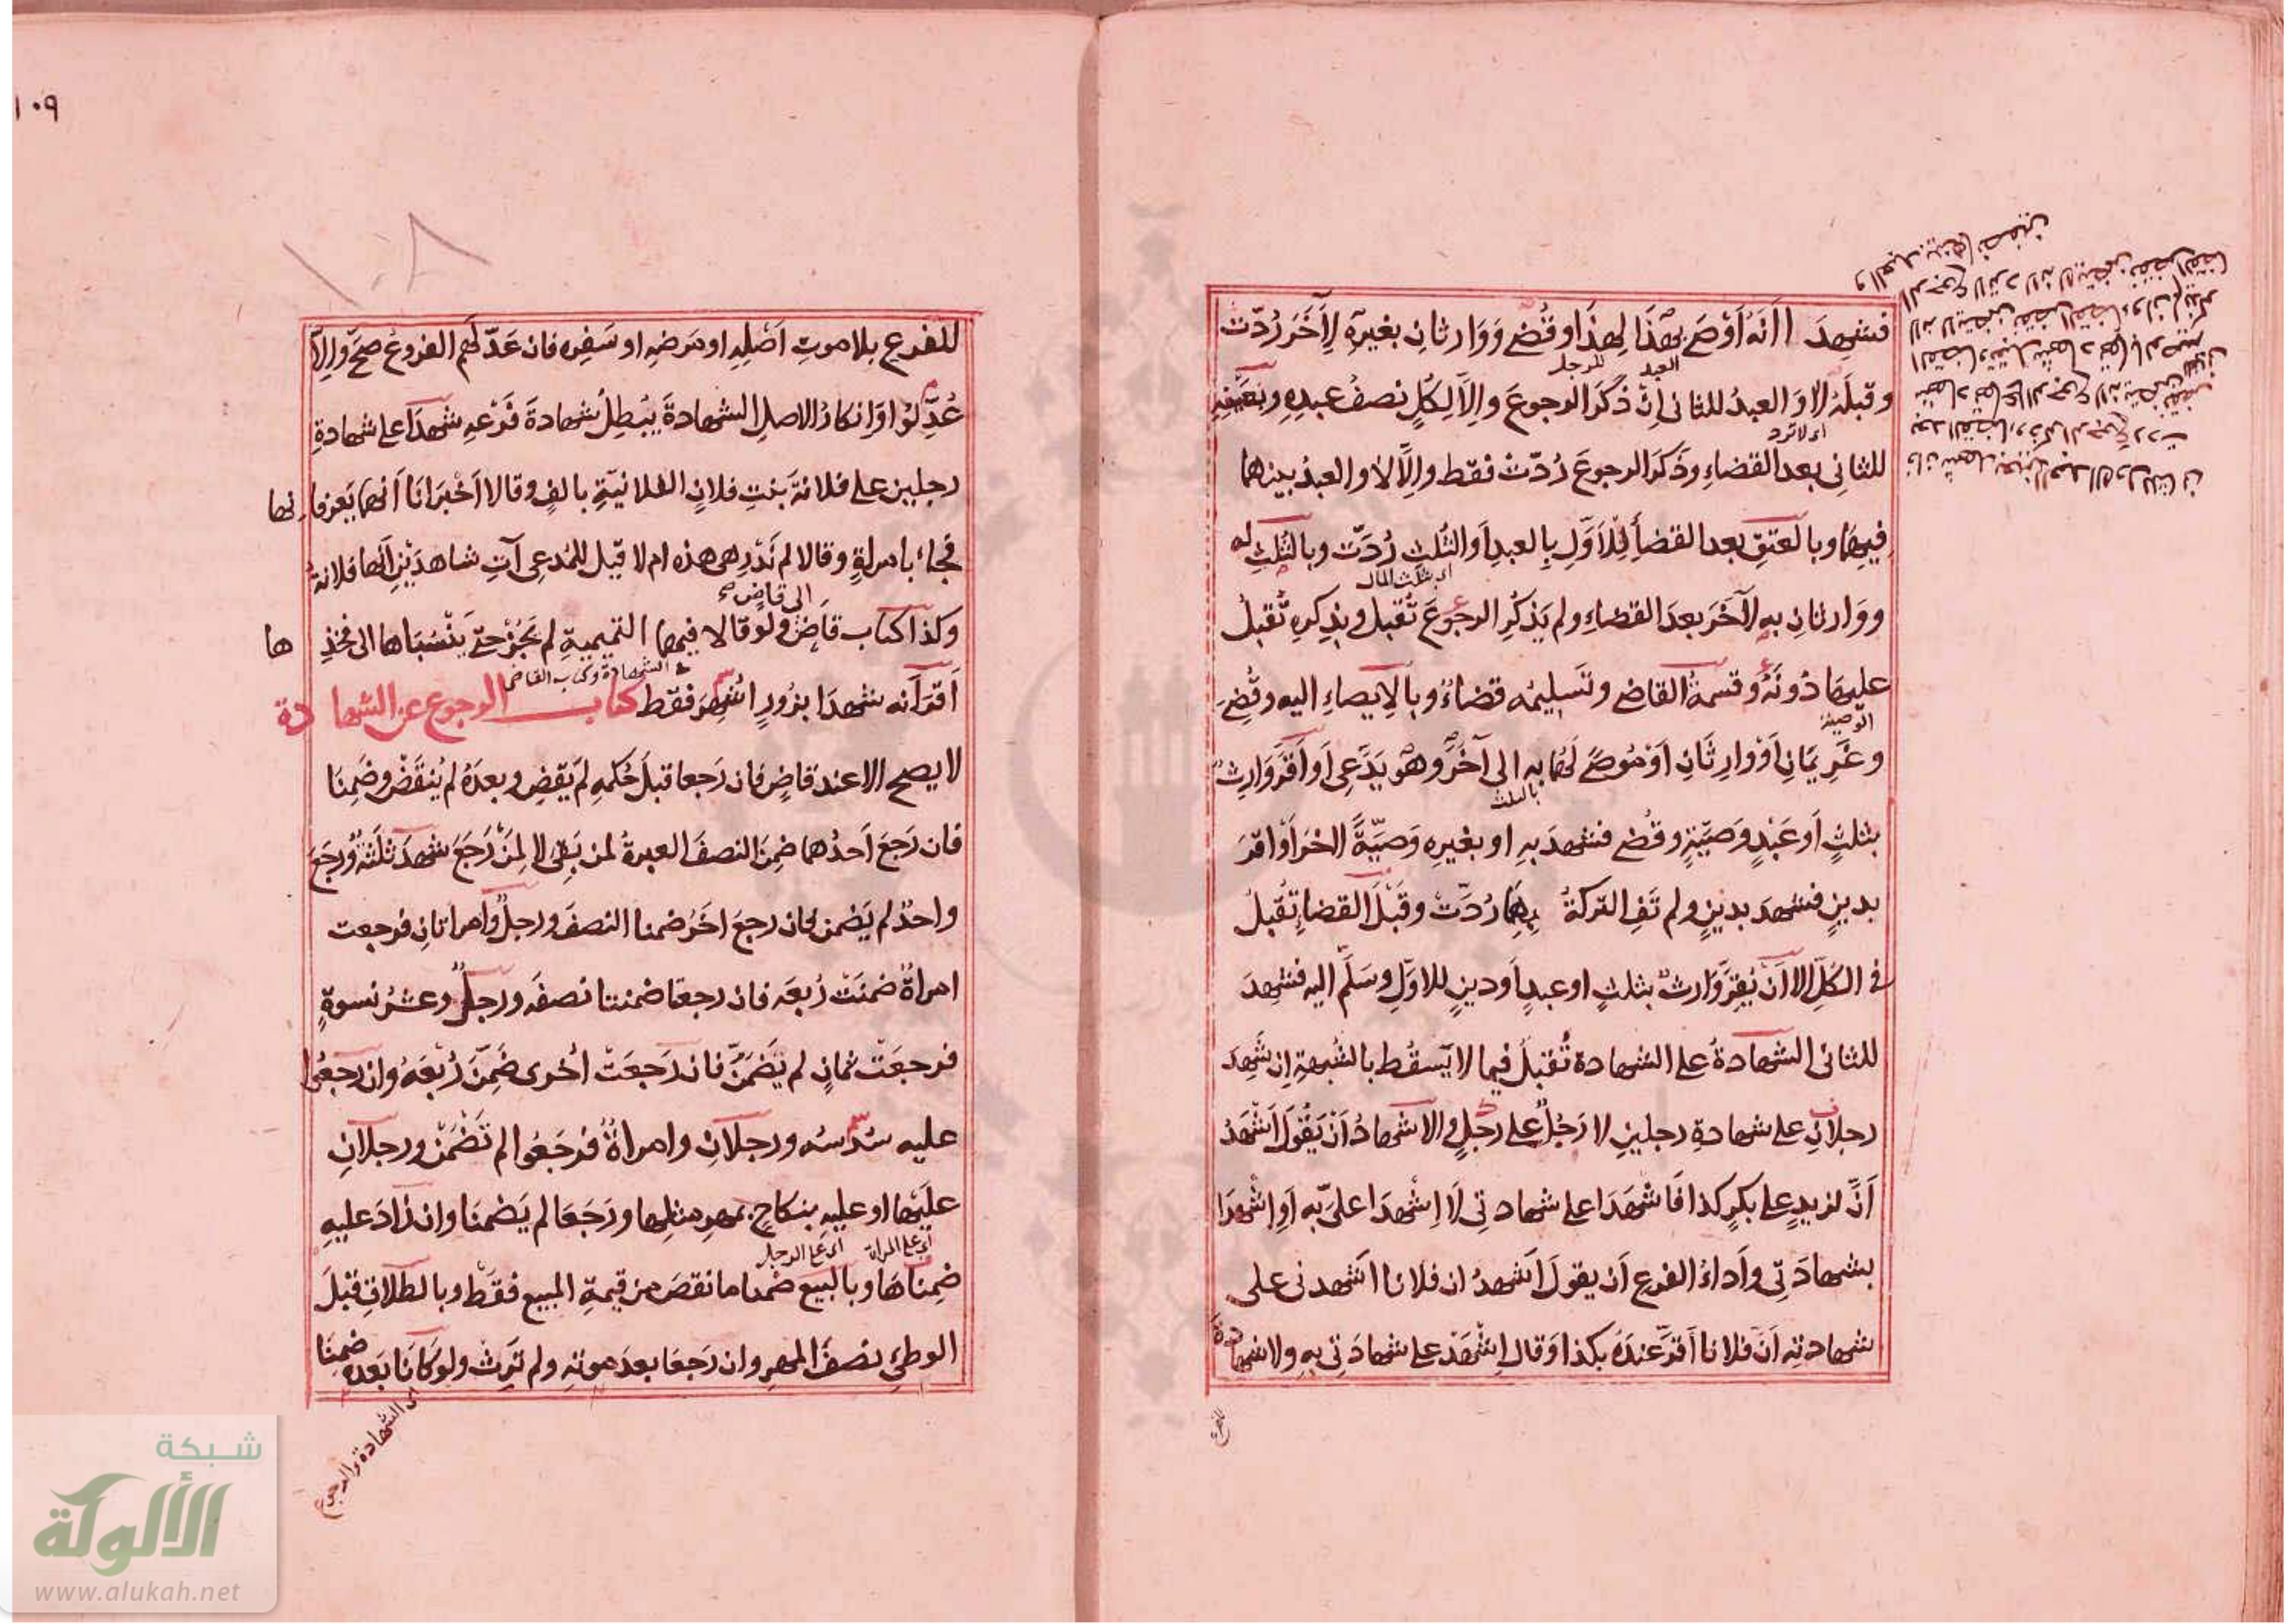 فشهدا انه اوصى بهذا لهذا او قضى ووارثان بغيره لآخر ردت
العبد للرجل
وقبله لا والعبد للثاني ان ذكرا الرجوع والا لكل نصف عبده وبعتقه
اى لا ترد
للثاني بعد القضاء وذكرا الرجوع ردت فقط والا لا والعبد بينهما
فيهما وبالعتق بعد القضاء للاول بالعبد او الثلث ردت وبالثلث له
اى بثلث المال
ووارثان به لآخر بعد القضاء ولم يذكر الرجوع تقبل وبذكره تقبل
عليهما دونه وقسمة القاضي وتسليمه قضاء وبالايصاء اليه وقضى
الوصية
وغريمان او وارثان او موصى لهما به الى آخر وهو يدعى او اقر وارث
بالثلث
بثلث او عبد وصية وقضى فشهد به او بغيره وصية الخر او اقر
بدين فشهد بدين ولم تف التركة بهما ردت وقبل القضاء تقبل
في الكل الا ان يقر وارث بثلث او عبد او دين للاول وسلم اليه فشهد
للثاني الشهادة على الشهادة تقبل فيما لا يسقط بالشبهة ان شهد
رجلان على شهادة رجلين لا رجل على رجل والاشهاد ان يقول اشهد
ان لزيد على بكر كذا فاشهدا على شهادتي لا اشهدا علي به او اشهدا
بشهادتي واداء الفرع ان يقول اشهد ان فلانا اشهدني على
شهادته ان فلانا اقر عنده بكذا وقال اشهد على شهادتي به ولا شهادة
للفرع
١٠٩
١٠٨
للفرع بلا موت اصله او مرضه او سفره فان عدلهم الفروع صح والا
عدلوا وانكار الاصل الشهادة يبطل شهادة فرعه شهدا على شهادة
رجلين على فلانة بنت فلان الفلانية بالف وقالا اخبرانا انهما يعرفانها
فجاء بامراة وقالا لم ندر هي هذه ام لا قيل للمدعي آت شاهدين انها فلانة
الى قاض صح
وكذا كتاب قاض ولو قالا فيهما التميمية لم يجز حتى ينسباها الى فخذها
في الشهادة وكتاب القاضي
اقر انه شهدا بزور شهر فقط كتاب الرجوع عن الشهادة
لا يصح الا عند قاض فان رجعا قبل حكمه لم يقض وبعده لم ينقض وضمنا
فان رجع احدهما ضمن النصف العبرة لمن بقي لا لمن رجع شهد ثلثة ورجع
واحد لم يضمن فان رجع اخر ضمنا النصف ورجل وامراتان فرجعت
امراة ضمنت ربعه فان رجعتا ضمنتا نصفه ورجل وعشر نسوة
فرجعت ثمان لم يضمن فان رجعت اخرى ضمن ربعه وان رجعوا
عليه سدسه ورجلان وامراة فرجعوا لم تضمن ورجلان
عليها او عليه بنكاح بمهر مثلها ورجعا لم يضمنا وان زاد عليه
اى على المراة اى على الرجل
ضمناها وبالبيع ضمنا ما نقص من قيمة المبيع فقط وبالطلاق قبل
الوطئ نصف المهر وان رجعا بعد موته ولم ترث ولو كانا بعده ضمنا
اى الشهادة والرجوع
شبكة
الألوكة
www.alukah.net